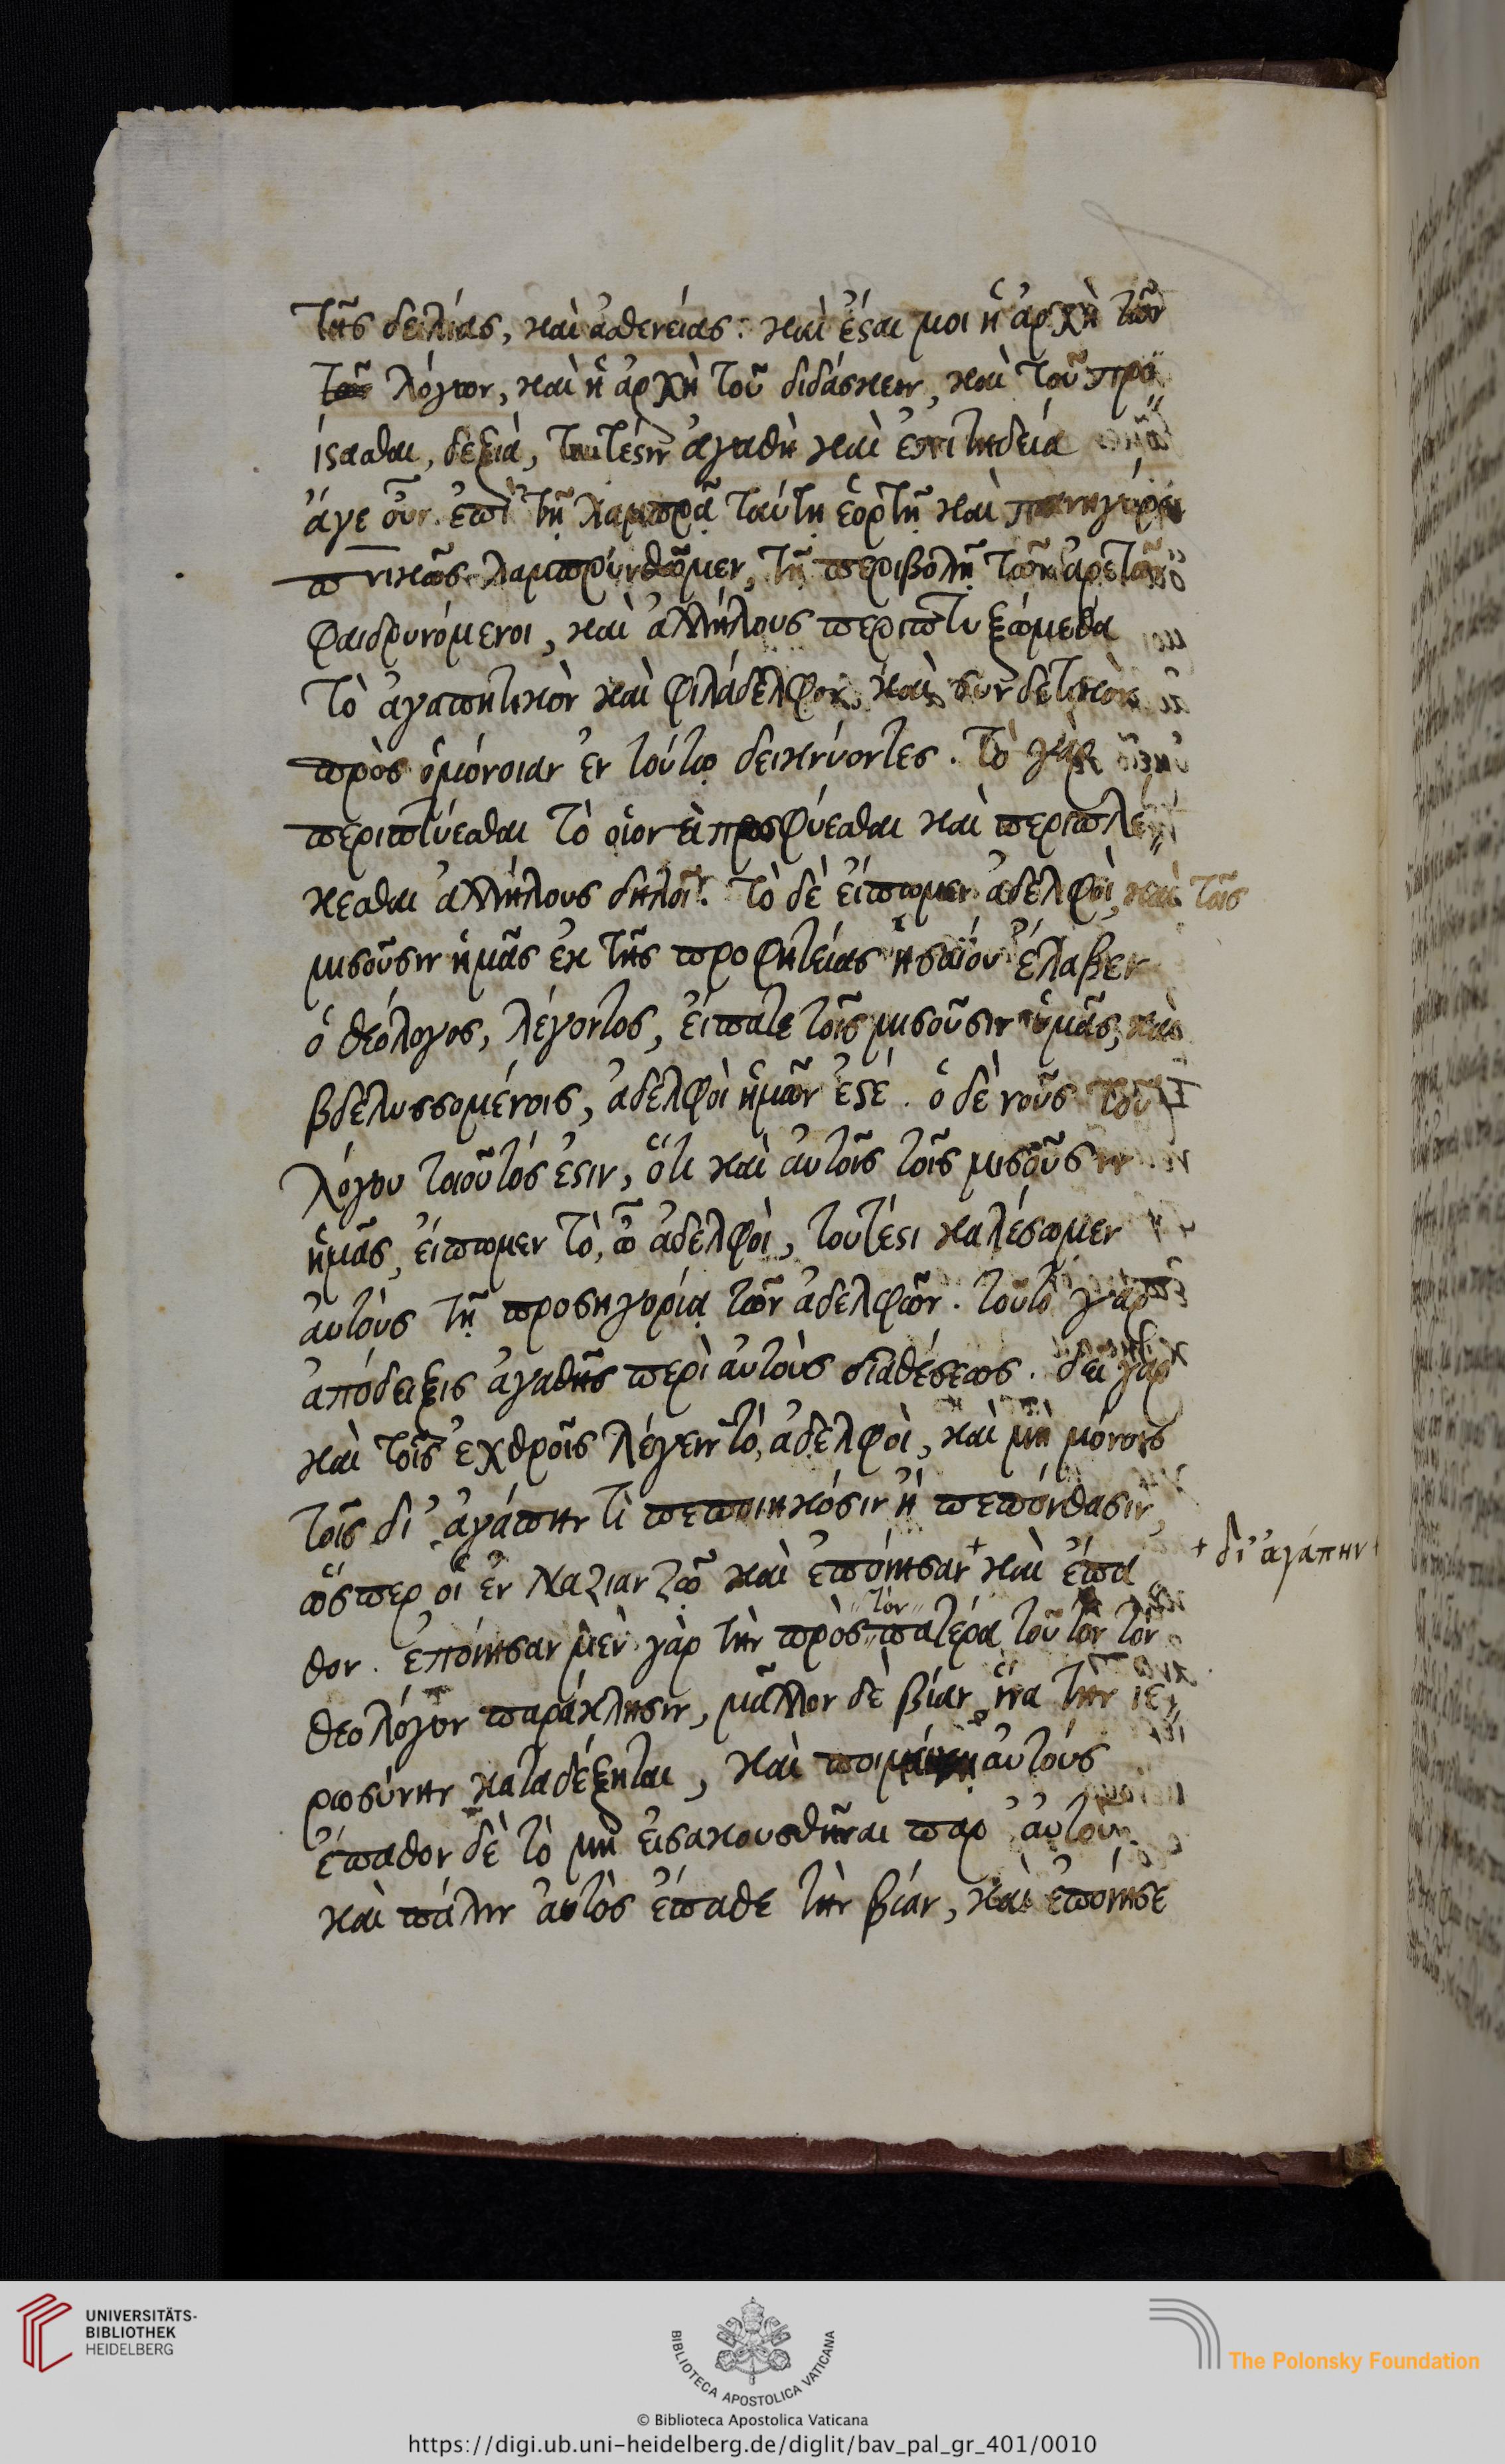 τῆς δειλίας, καὶ ἀσθενείας: καὶ ἔσται μοι ἡ ἀρχὴ τῶν
λόγων, καὶ ἡ ἀρχὴ τοῦ διδάσκειν, καὶ τοῦ προ
ίστασθαι, δεξιὰ, τουτέστιν ἀγαθὴ καὶ ἐπιτηδεία
ἄγε οὖν ἐπὶ τῇ λαμπρᾷ ταύτῃ ἑορτῇ καὶ πανηγύρει
πνικῶς λαμπρυνθῶμεν, τῇ περιβολῇ τῶν ἀρετῶν
φαιδρυνόμενοι, καὶ ἀλλήλους περιπτυξώμεθα
τὸ ἀγαπητικὸν καὶ φιλάδελφον, καὶ συνδετικὸν
πρὸς ὁμόνοιαν ἐν τούτῳ δεικνύοντες. τὸ γὰρ
περιπτύεσθαι τὸ οἱονεὶ προσφύεσθαι καὶ περιπλέ
κεσθαι ἀλλήλους δηλοῖ. τὸ δὲ εἴπωμεν ἀδελφοὶ, καὶ τοῖς
μισοῦσιν ἡμᾶς ἐκ τῆς προφητείας ἡσαΐου ἔλαβεν
ὁ θεόλογος, λέγοντος, εἴπατε τοῖς μισοῦσιν ἡμᾶς, καὶ
βδελυσσομένοις, ἀδελφοὶ ἡμῶν ἐστέ. ὁ δὲ νοῦς τοῦ
λόγου τοιοῦτός ἐστιν, ὅτι καὶ αὐτοῖς τοῖς μισοῦσιν
ἡμᾶς, εἴπωμεν τὸ, ὦ ἀδελφοὶ, τουτέστι καλέσωμεν
αὐτοὺς τῇ προσηγορίᾳ τῶν ἀδελφῶν. τοῦτο γὰρ
ἀπόδειξις ἀγαθῆς περὶ αὐτοὺς διαθέσεως. δεῖ γὰρ
καὶ τοῖς ἐχθροῖς λέγειν τὸ, ἀδελφοὶ, καὶ μὴ μόνοις
τοῖς δι' ἀγάπην τὶ πεποιηκόσιν ἢ πεπόνθασιν,
ὥσπερ οἱ ἐν Ναζιανζῷ καὶ ἐποίησαν + καὶ ἔπα
+ δι' ἀγάπην +
θον. ἐποίησαν μὲν γὰρ τὴν πρὸς τὸν πατέρα τοῦτον τὸν
θεολόγον παράκλησιν, μᾶλλον δὲ βίαν ἵνα τὴν ἱε
ρωσύνην καταδέξηται, καὶ αὐτούς
ἔπαθον δὲ τὸ μὴ εἰσακουσθῆναι παρ' αὐτοῦ
καὶ πάλιν αὐτὸς ἔπαθε τὴν βίαν, καὶ ἐποίησε
UNIVERSITÄTS-
BIBLIOTHEK
HEIDELBERG
BIBLIOTECA APOSTOLICA VATICANA
The Polonsky Foundation
© Biblioteca Apostolica Vaticana
https://digi.ub.uni-heidelberg.de/diglit/bav_pal_gr_401/0010